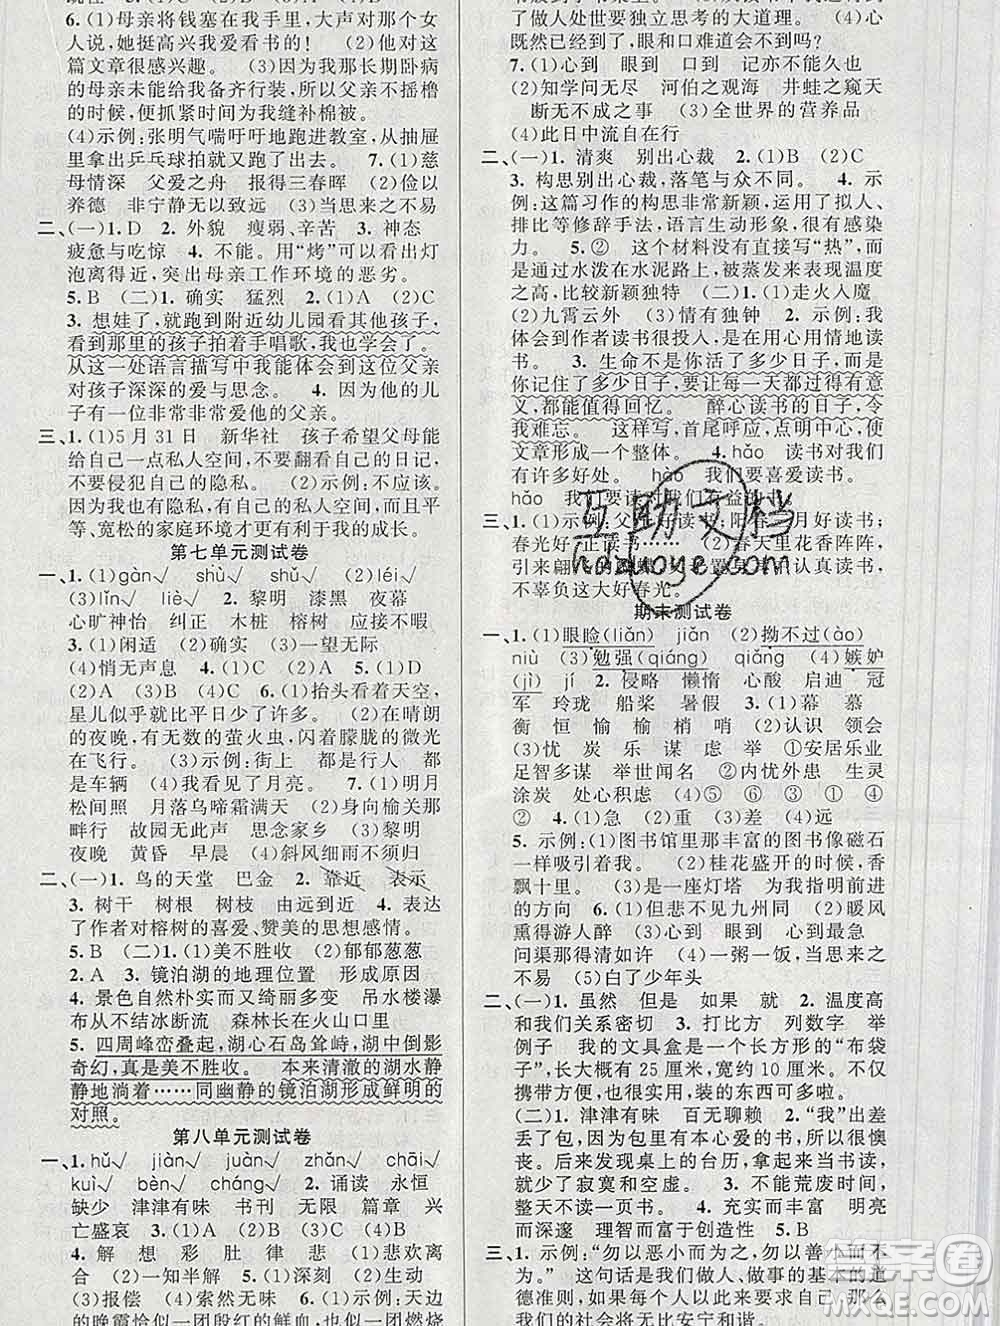 6.(1)母亲将钱塞在我手里,大声对那个女
人说,她挺高兴我爱看书的!  (2)他对这
篇文章很感兴趣。  (3)因为我那长期卧病
的母亲未能给我备齐行装,所以父亲不摇橹
的时候,便抓紧时间为我缝补棉被。
(4)示例:张明气喘吁吁地跑进教室,从抽屉
里拿出乒乓球拍就又跑了出去。  7.(1)慈
母情深  父爱之舟  报得三春晖  (2)俭以
养德  非宁静无以致远  (3)当思来之不易
二、(一)1.D  2.外貌  瘦弱、辛苦  3.神态
疲惫与吃惊  4.不能。用“烤”可以看出灯
泡离得近,突出母亲工作环境的恶劣。
5.B  (二)1.确实  猛烈  2.(1)A  (2)B
3.想娃了,就跑到附近幼儿园看其他孩子,
看到那里的孩子拍着手唱歌,我也学会了。
从这一处语言描写中我能体会到这位父亲
对孩子深深的爱与思念。  4.因为他的儿
子有一位非常非常爱他的父亲。
三、1.(1)5月31日  新华社  孩子希望父母能
给自己一点私人空间,不要翻看自己的日记,
不要侵犯自己的隐私。  (2)示例:不应该。
因为我有隐私,有自己的私人空间,而且平
等、宽松的家庭环境才更有利于我的成长。
第七单元测试卷
一、1.(1)gàn√  shù√  shǔ√  (2)léi√
(3)lǐn√  liè√  2.黎明  漆黑  夜幕
心旷神怡  纠正  木桩  榕树  应接不暇
3.(1)闲适  (2)确实  (3)一望无际
(4)悄无声息  4.(1)C  (2)B  5.(1)D
(2)A  (3)B  (4)C  6.(1)抬头看着天空,
星儿似乎就比平日少了许多。  (2)在晴朗
的夜晚,有无数的萤火虫,闪着朦胧的微光
在飞行。  (3)示例:街上  都是行人  都
是车辆  (4)我看见了月亮。  7.(1)明月
松间照  月落乌啼霜满天  (2)身向榆关那
畔行  故园无此声  思念家乡  (3)黎明
夜晚  黄昏  早晨  (4)斜风细雨不须归
二、(一)1.鸟的天堂  巴金  2.靠近  表示
3.树干  树根  树枝  由远到近  4.表达
了作者对榕树的喜爱、赞美的思想感情。
5.B  (二)1.(1)美不胜收  (2)郁郁葱葱
2.A  3.镜泊湖的地理位置  形成原因
4.景色自然朴实而又绮丽多变  吊水楼瀑
布从不结冰断流  森林长在火山口里
5.四周峰峦叠起,湖心石岛耸峙,湖中倒影
奇幻,真是美不胜收。  本来清澈的湖水静
静地淌着……同幽静的镜泊湖形成鲜明的
对照。
第八单元测试卷
一、1.hǔ√  jiàn√  juàn√  zhǎn√  chāi√
kuì√  bèn√  cháng√  2.诵读  永恒
缺少  津津有味  书刊  无限  篇章  兴
亡盛衰  3.(1)A  (2)C  (3)D  (4)B
4.解  想  彩  肚  律  悲  (1)悲欢离
合  (2)一知半解  5.(1)深刻  (2)生动
(3)报偿  (4)索然无味  6.示例:(1)天边
的晚霞恰似一团殷红的鲜血,也像一炉燃烧
了做人处世要独立思考的大道理。  (4)心
既然已经到了,眼和口难道会不到吗?
7.(1)心到  眼到  口到  记亦不能久也
(2)知学问无尽  河伯之观海  井蛙之窥天
断无不成之事  (3)全世界的营养品
(4)此日中流自在行
二、(一)1.清爽  别出心裁  2.(1)B  (2)C
3.构思别出心裁,落笔与众不同。  4.示
例:这篇习作的构思非常新颖,运用了拟人、
排比等修辞手法,语言生动形象,很有感染
力。  5.②  这个材料没有直接写“热”,而
是通过水泼在水泥路上,被蒸发来表现温度
之高,比较新颖独特  (二)1.(1)走火入魔
(2)九霄云外  (3)情有独钟  2.示例:我
体会到作者读书很投入,是在用心用情地读
书。  3.生命不是你活了多少日子,而是
你记住了多少日子,要让每一天都过得有意
义,都能值得回忆。  醉心读书的日子,令
我难忘。  这样写,首尾呼应,点明中心,使
文章形成一个整体。  4.hǎo  读书对我们
有许多好处。  hào  我们要喜爱读书。
hǎo  我们要读对我们有益的书。
三、(1)示例:父
春光好  正读书……  (2)春天里花香阵阵,
不辜负这大好春光。
期末测试卷
一、1.(1)眼睑(liǎn)  jiǎn  (2)拗不过(ào)
niù  (3)勉强(qiáng)  qiǎng  (4)嫉妒
(jì)  jí  2.侵略  懒惰  心酸  启迪  冠
军  玲珑  船桨  暑假  3.(1)幕  慕
衡  恒  愉  榆  梢  哨  (2)认识  领会
(3)忧  炭  乐  谋  虑  举  ①安居乐业
足智多谋  举世闻名  ②内忧外患  生灵
涂炭  处心积虑  (4)⑤  ⑥  ③  ①  ④
②  4.(1)急  (2)重  (3)差  (4)远
5.示例:(1)图书馆里那丰富的图书像磁石
一样吸引着我。  (2)桂花盛开的时候,香
飘十里。  (3)是一座灯塔  为我指明前进
的方向  6.(1)但悲不见九州同  (2)暖风
熏得游人醉  (3)心到  眼到  心到最急
问渠那得清如许  (4)一粥一饭,当思来之
不易  (5)白了少年头
二、(一)1.虽然  但是  如果  就  2.温度高
和我们关系密切  3.打比方  列数字  举
例子  4.示例:我的文具盒是一个长方形的“布袋
子”,长大概有25厘米,宽约10厘米。它不仅
携带方便,也很美观,装的东西可多啦。
(二)1.津津有味  百无聊赖  2.“我”出差
丢了包,包里有本心爱的书,所以很懊丧。
3.不能荒废时间,
整天不读一页书。  4.充实而丰富  明亮
而深邃  理智而富于创造性  5.B
三、1.示例:“勿以恶小而为之,勿以善小而不
为。”  这句话是我们做人、做事的基本的道
德准则,如果人人以此来要求自己,那么,
我们的社会将无比安宁和谐。
互助文档
hdzuoye.com
答案圈
MXQE.COM